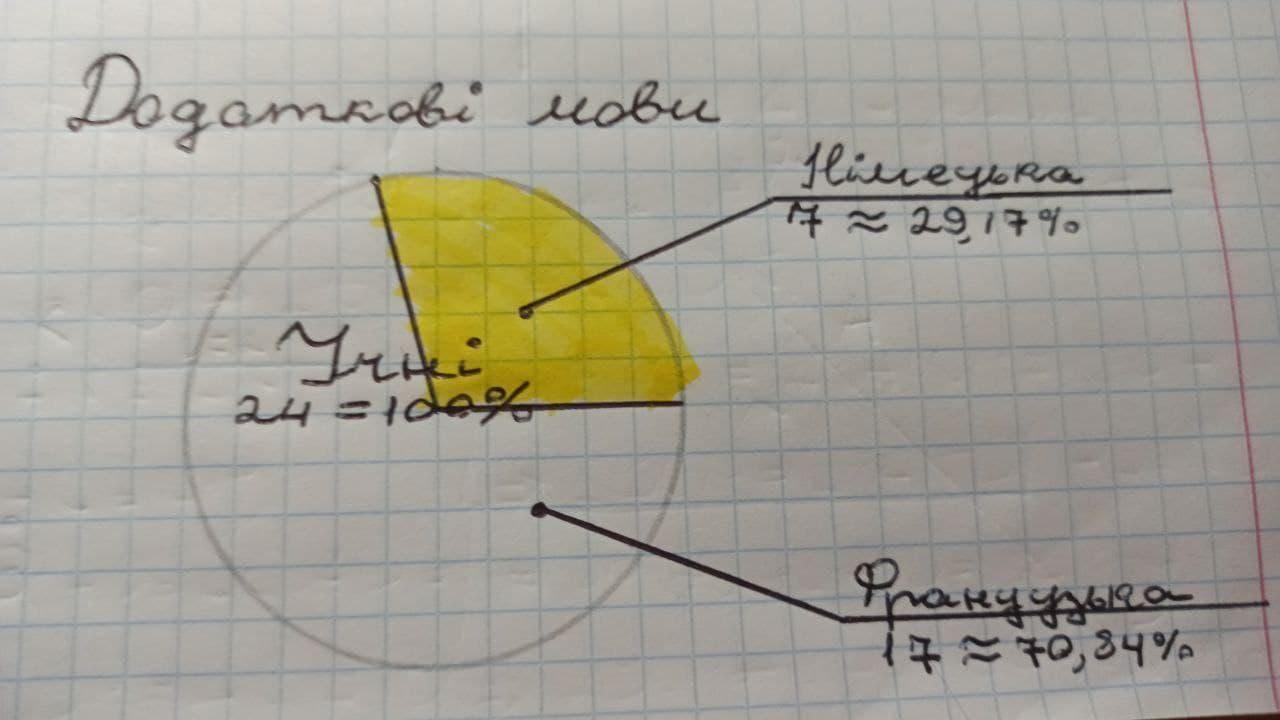 Додаткові мови
Німецька
7 ≈ 29,17%
Учні
24 = 100%
Французька
17 ≈ 70,84%